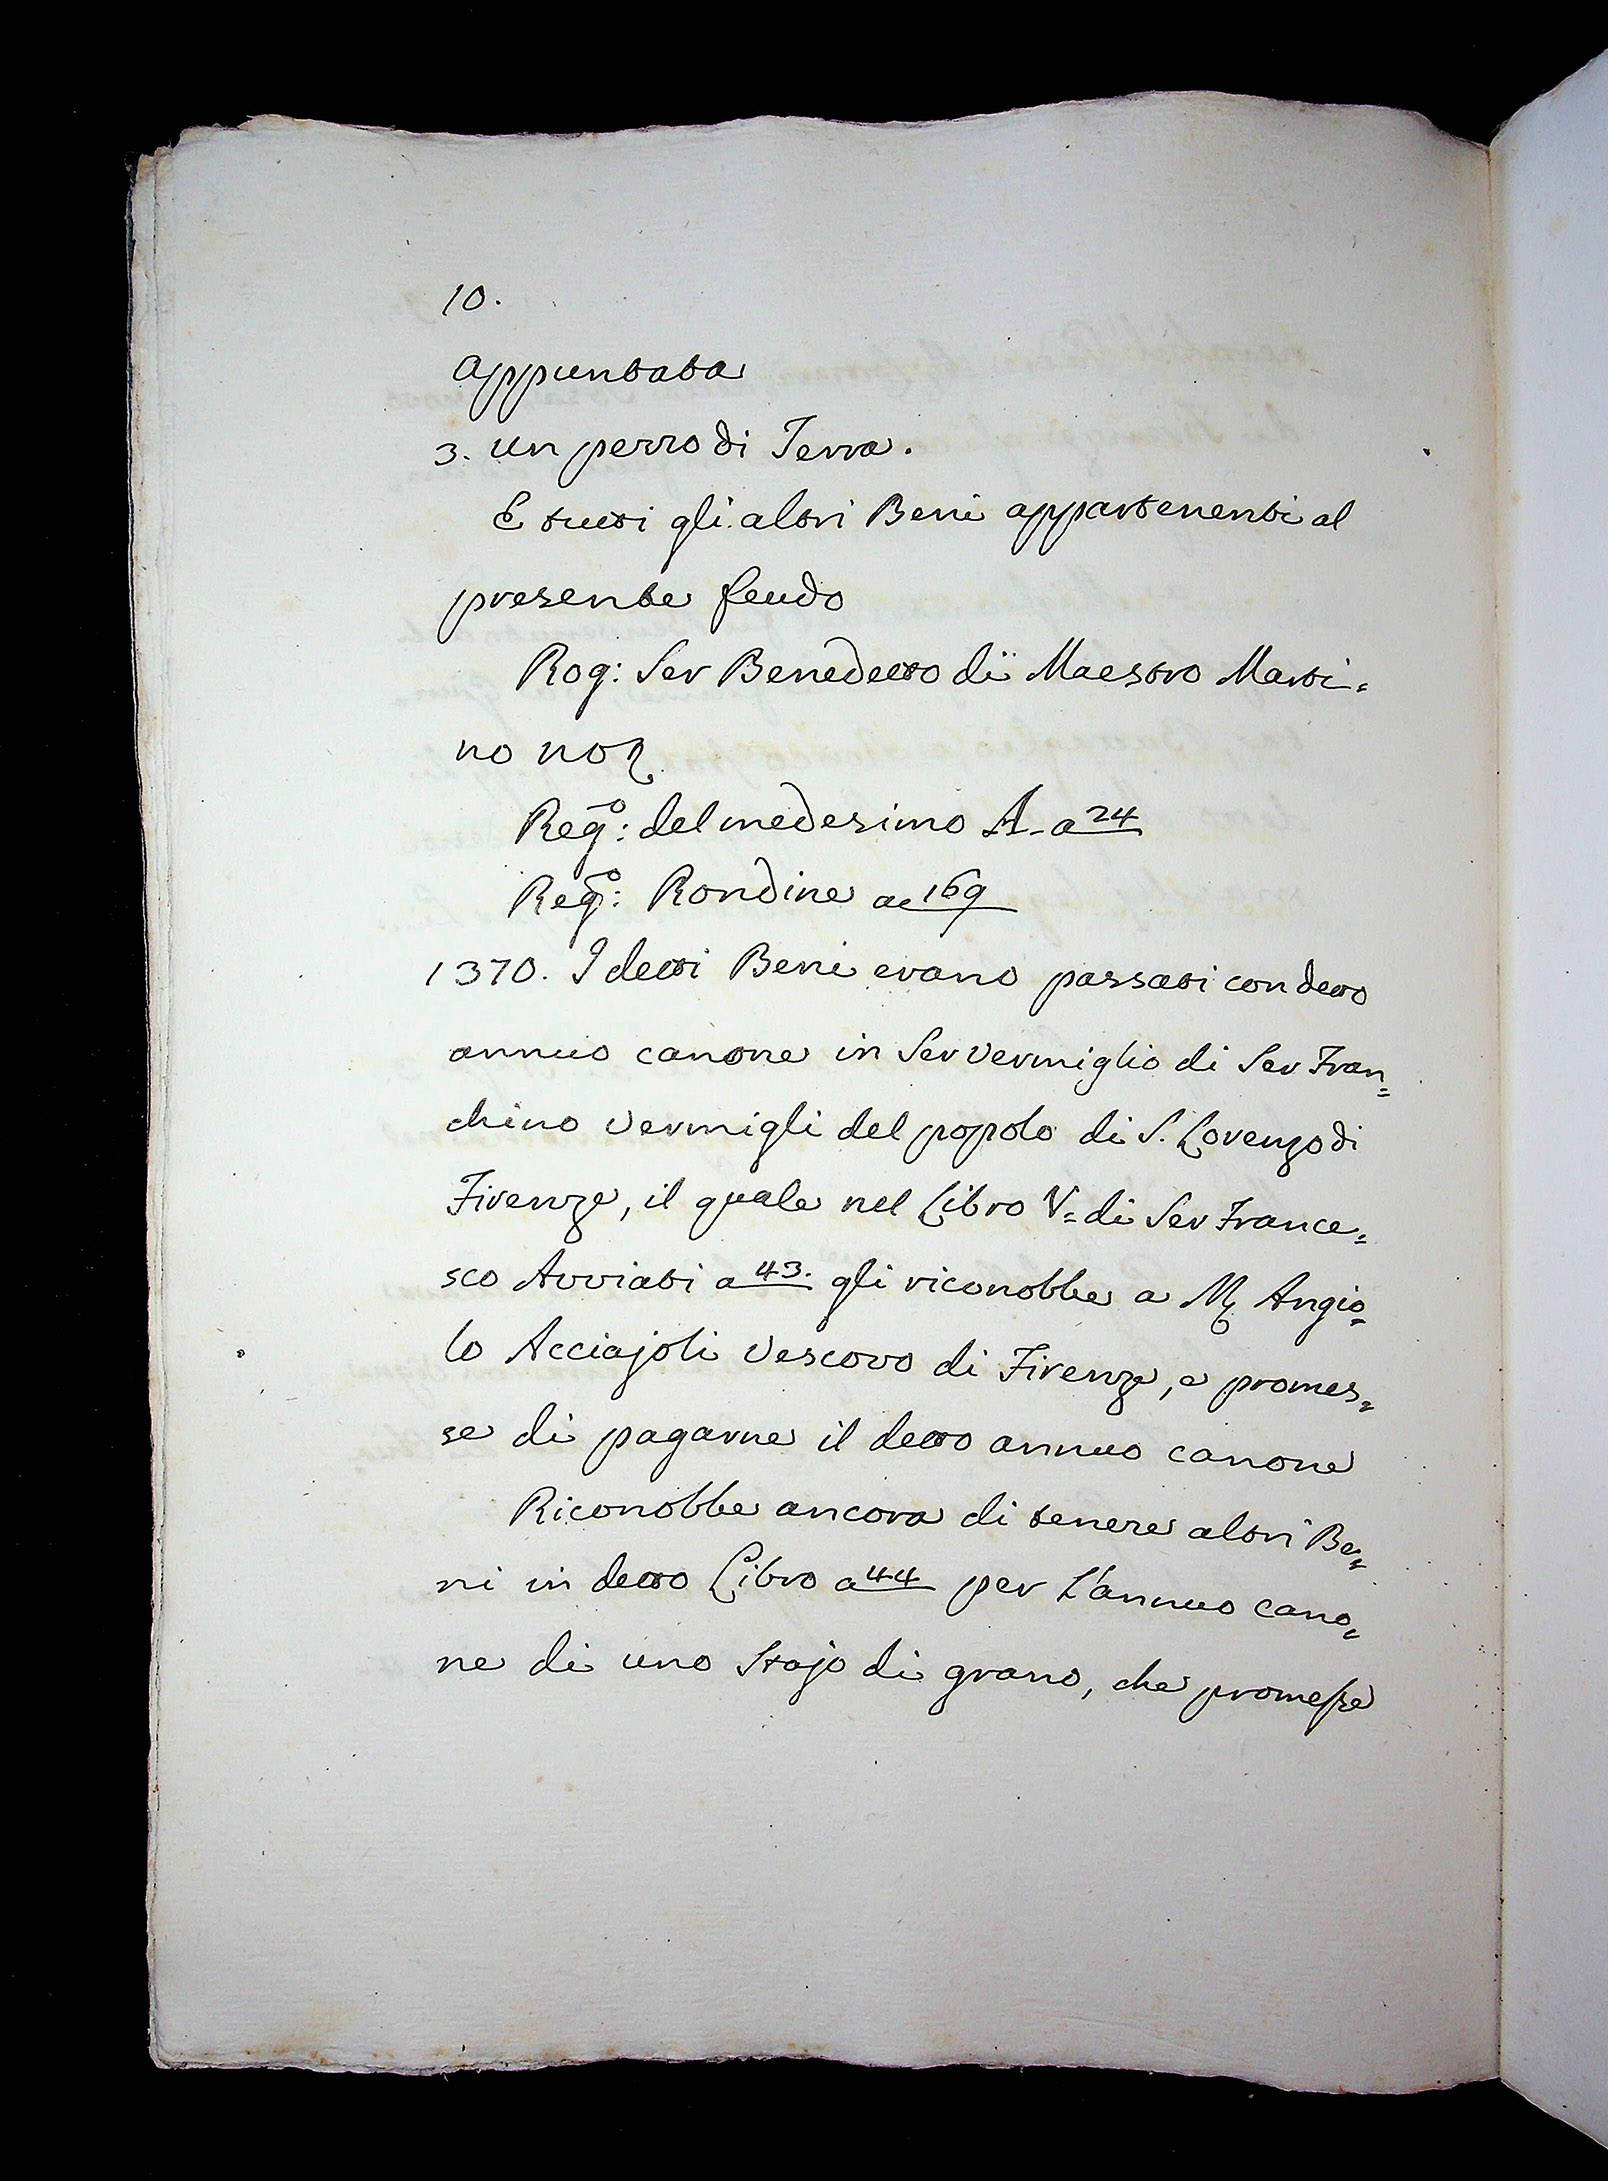 10.
appuntata
3. un pezzo di Terra.
E tutti gli altri Beni appartenenti al
presente feudo
Rog: Ser Benedetto di Maestro Marti=
no not
Reg:º del medesimo A. a 24
Reg:º Rondine a 169
1370. I detti Beni erano passati con detto
annuo canone in Ser Vermiglio di Ser Fran=
chino Vermigli del popolo di S. Lorenzo di
Firenze, il quale nel Libro V= di Ser France=
sco Avviati a 43. gli riconobbe a M Angio=
lo Acciajoli Vescovo di Firenze, e promes=
se di pagarne il detto annuo canone
Riconobbe ancora di tenere altri Be=
ni in detto Libro a 44 per l'annuo cano=
ne di uno Stajo di grano, che promesse